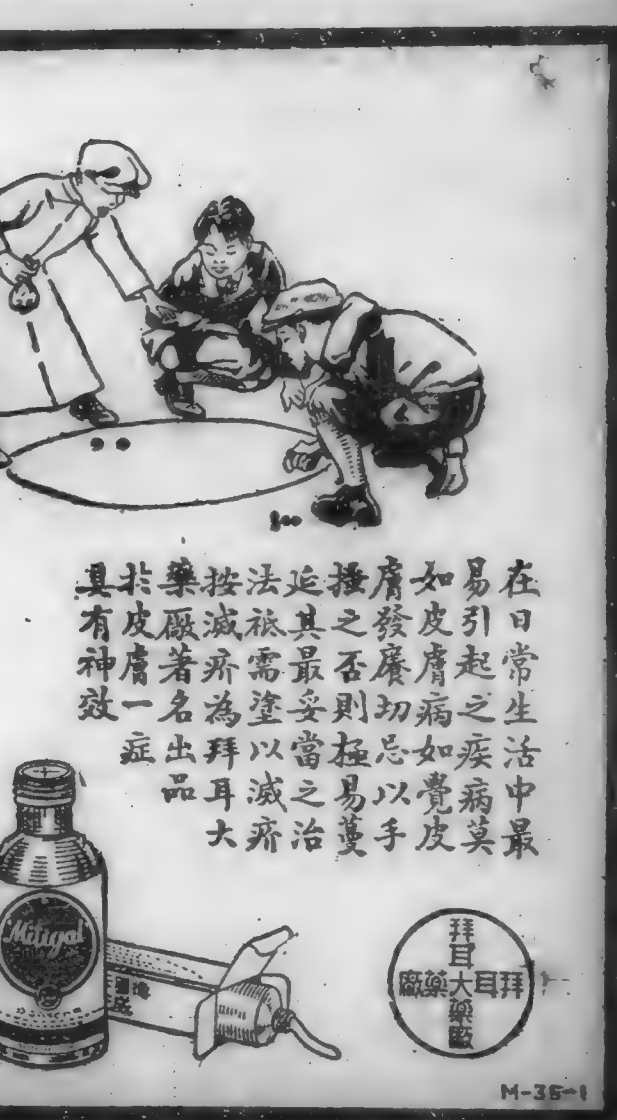 在日常生活中最
易引起之疾病莫
如皮膚病如覺皮
膚發癢切忌以手
搔之否則極易蔓
延其最妥當之治
法祗需塗以滅疥
按滅疥為拜耳大
藥廠著名出品
於皮膚一症
具有神效
Mitigal
拜耳大藥廠
拜耳大藥廠
M-35-1